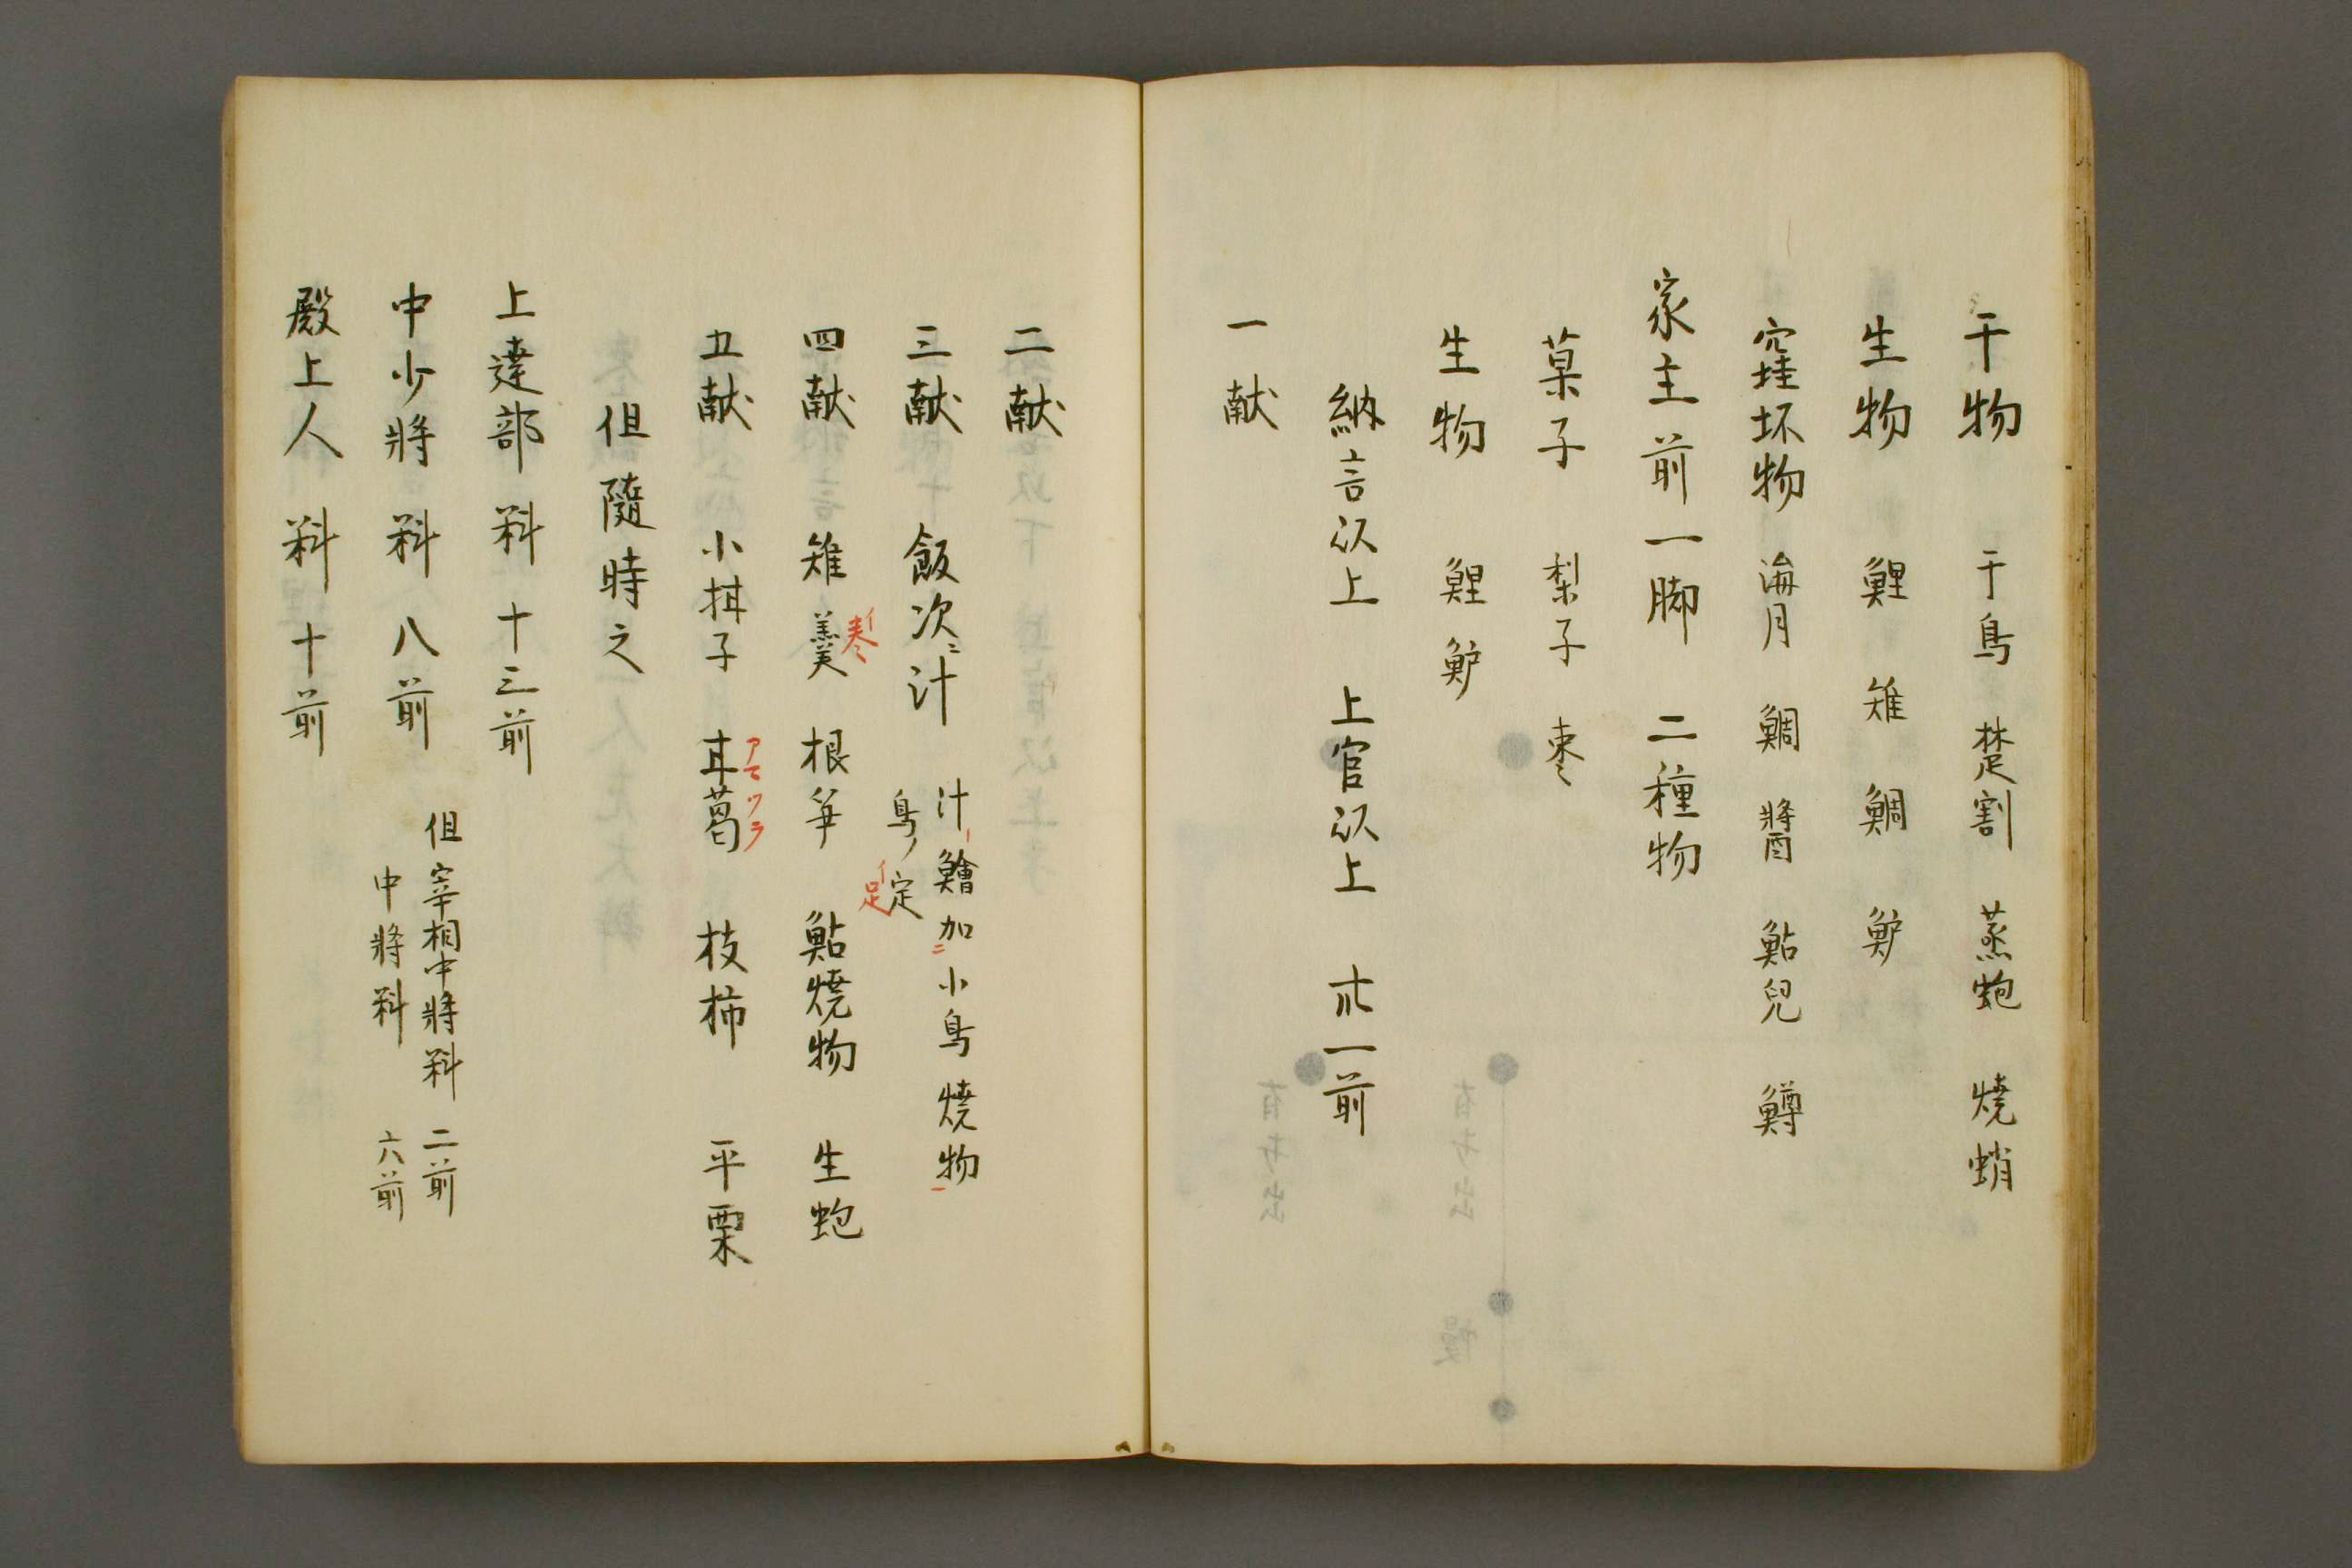 干物　干鳥　楚割　蒸蚫　燒蛸
生物　鯉　雉　鯛　鱸
窪坏物　海月　鯛醬　鮎兒　鱒
家主前一脚　二種物
菓子　梨子　棗
生物　鯉　鱸
納言以上　上官以上　一前
一献
二献
三献　飯次ニ汁　汁鱠加ニ小鳥燒物一
鳥ノ定
イ足
四献　雉羹　根笋　鮎燒物　生蚫
イ棗
五献　小柑子　甘葛　枝柿　平栗
アマツラ
但隨時之
上達部　料　十三前
中少將　料　八前　但宰相中將料　二前
中將料　六前
殿上人　料　十前